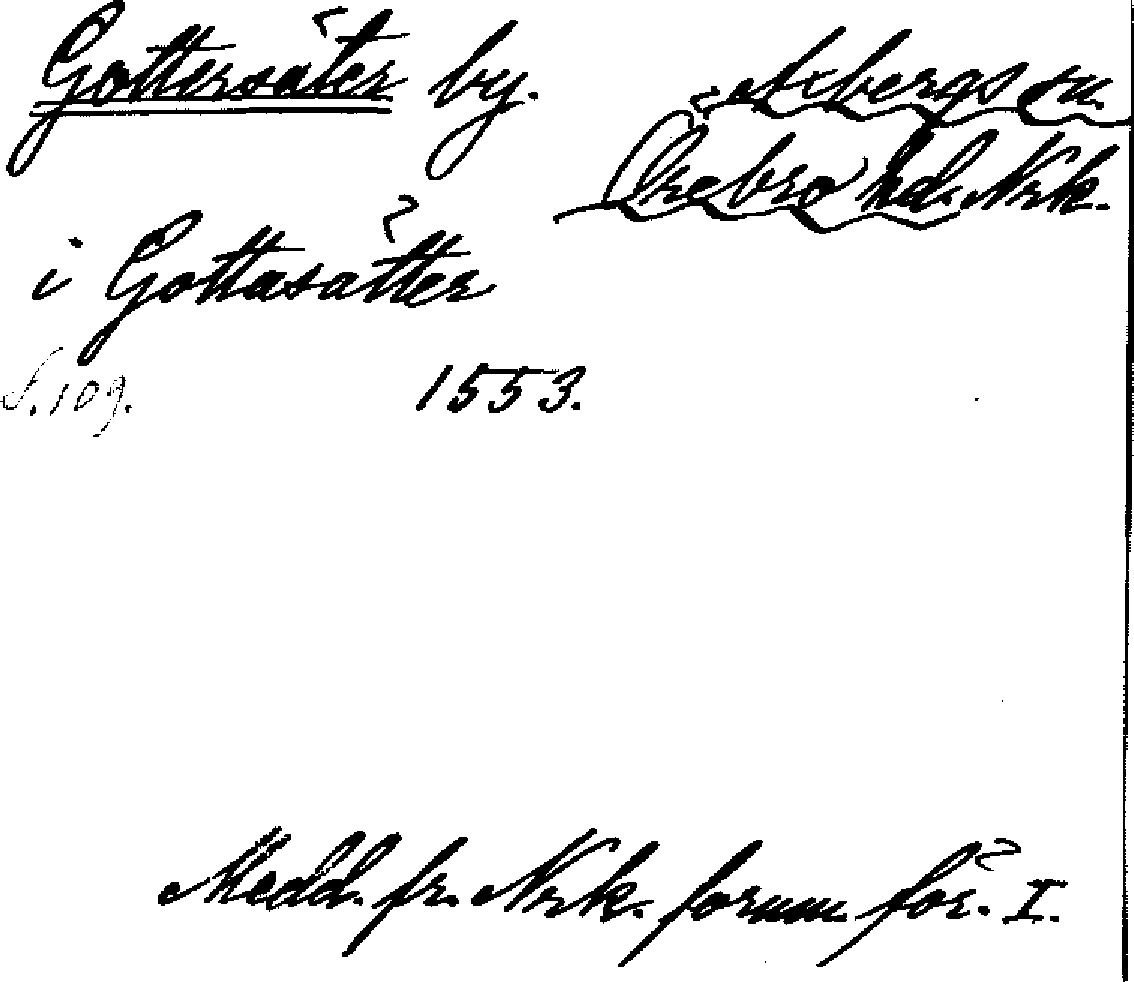 Gottersäter by. Axbergs sn.
Örebro hd. Nrk.
i Gottasätter
s. 109. 1553.
Medd. fr. Nrk. fornm. för. I.